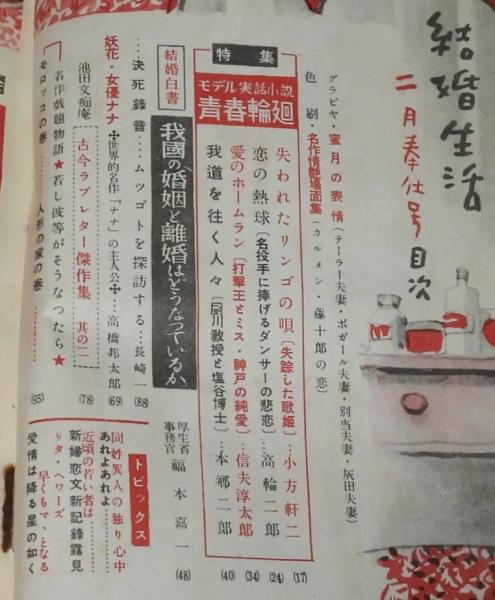 結婚生活
二月奉仕号 目次
グラビヤ・蜜月の表情(テーラー夫妻・ボガール夫妻・別当夫妻・灰田夫妻)
色刷・名作情艶場面集(カルメン・藤十郎の恋)
特集
モデル実話小説
青春輪廻
失われたリンゴの唄[失踪した歌姫]…小方軒二(17)
恋の熱球[名投手に捧げるダンサーの悲恋]…高輪二郎(24)
愛のホームラン[打撃王とミス・神戸の純愛]…信夫淳太郎(34)
我道を往く人々[厨川教授と塩谷博士]…本郷二郎(40)
結婚白書
我國の婚姻と離婚はどうなっているか
厚生省事務官 福本嘉一(48)
……決死録音……ムツゴトを探訪する……長崎一(88)
妖花・女優ナナ ✣世界的名作「ナナ」の主人公✣…高橋邦太郎(69)
池田文痴庵 古今ラブレター傑作集 其の二(78)
名作戯題物語★若し彼等がそうなつたら★
モロッコの巻………人形の家の巻………(95)
トピックス
同姓異人の独り心中
あれよあれよ
近頃の若い者は
新婦恋文新記録露見
リタ・ヘワーズ
早くもママとなる
愛情は降る星の如く